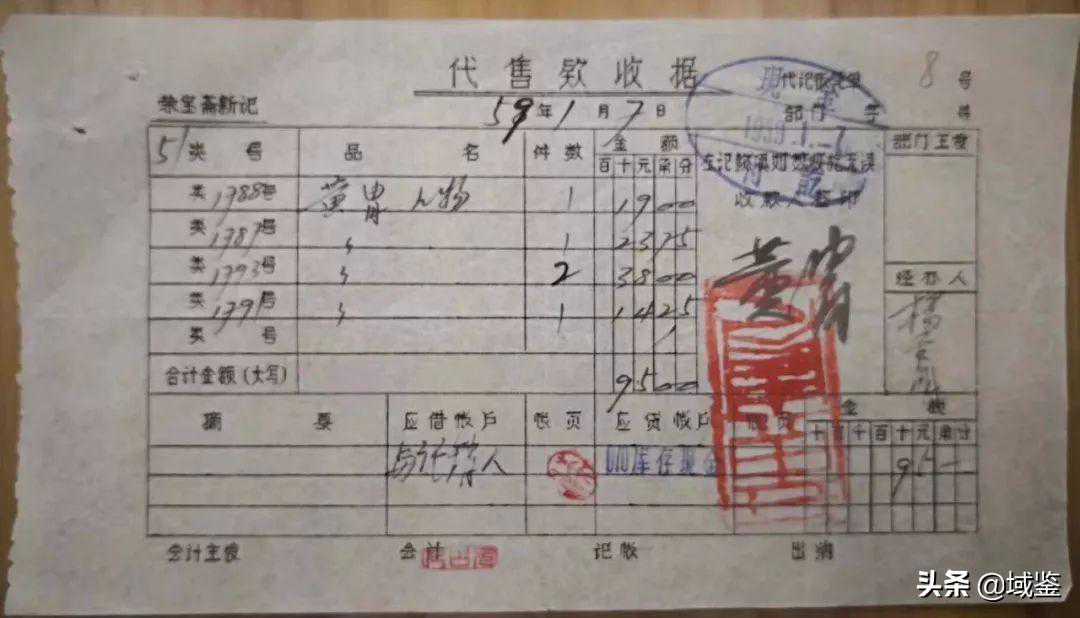 代售款收据
8 号
荣宝斋新记
59年1月7日
部门 字 号
1959.1.-7
51类 号 品 名 件数 金额 部门主管
百十元角分
类1788号 黄胄人物 1 1900
收款人签印
类1787号 〃 1 2375
黄胄
类1793号 〃 2 3800
经办人
类1791号 〃 1 1425
类 号
合计金额(大写) 9500
摘 要 应借帐户 帐页 应贷帐户 帐页 金额
十万千百十元角分
寄售人 库存现金 95—
会计主管 会计 记帐 出纳
头条 @域鉴